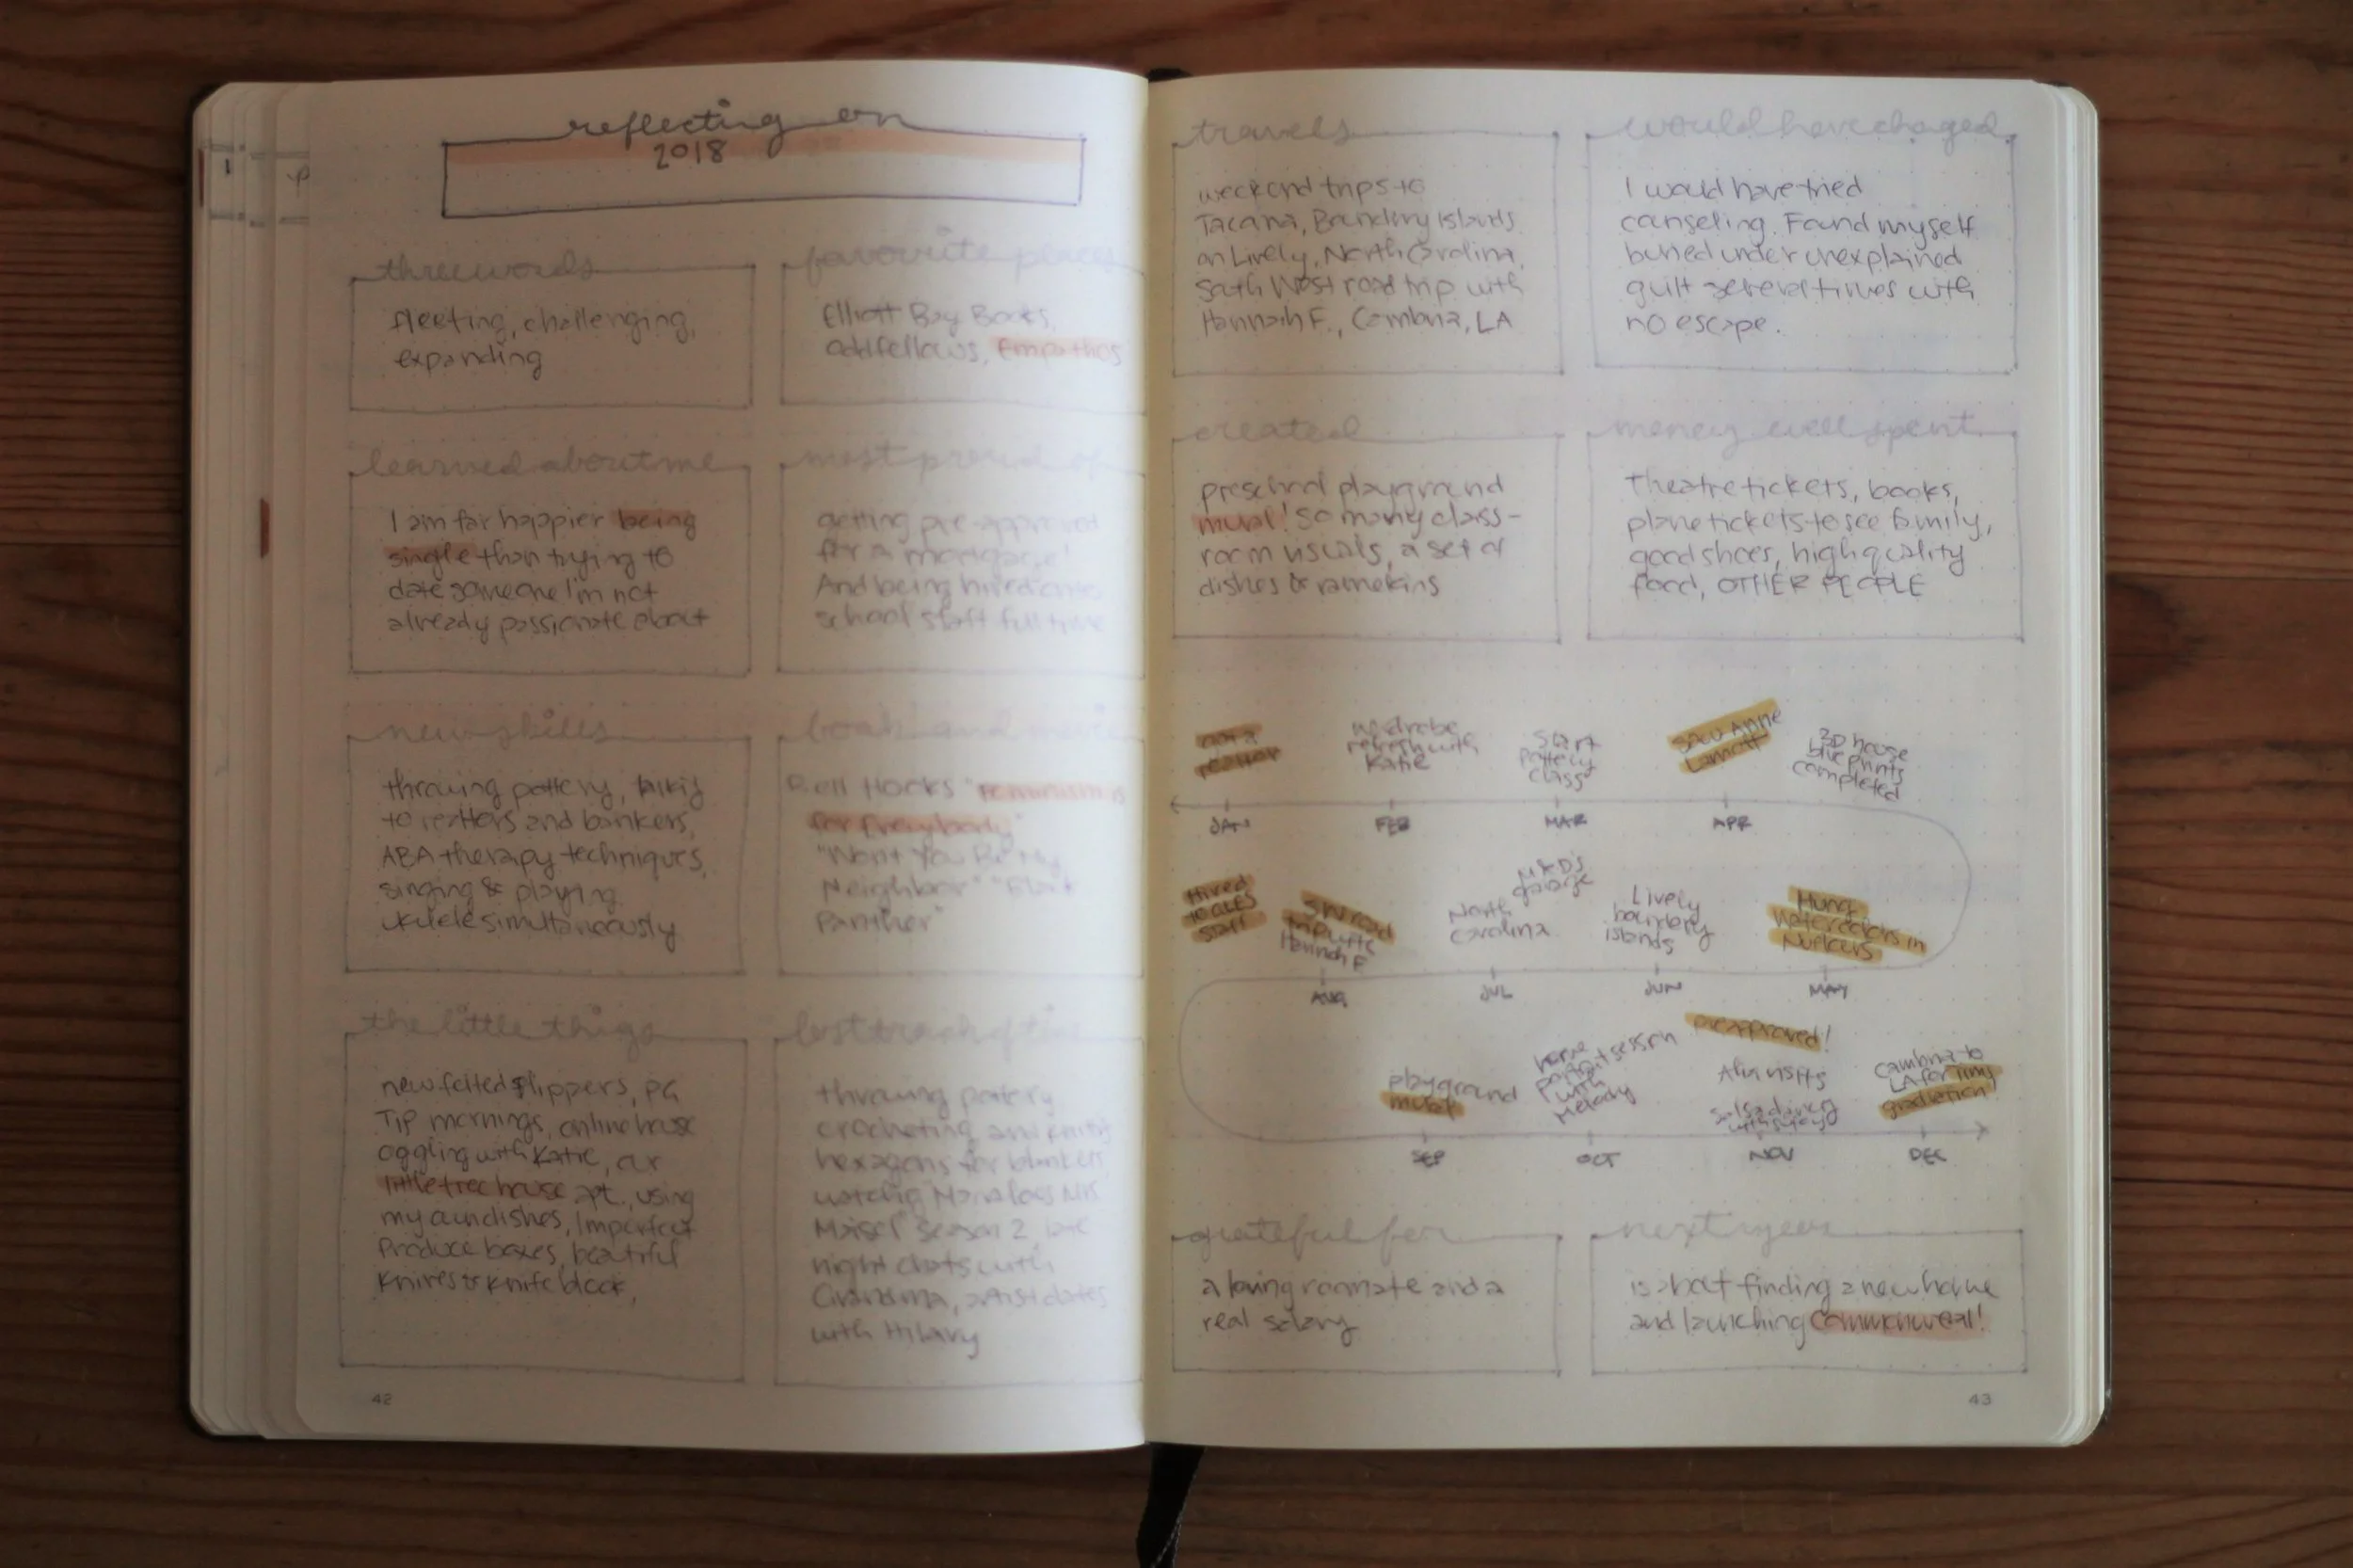 reflecting on
2018
three words
fleeting, challenging,
expanding
favourite places
Elliott Bay Books,
oddfellows, Empathos
learned about me
I am far happier being
single than trying to
date someone I'm not
already passionate about
most proud of
getting pre-approved
for a mortgage!
And being hired onto
school staff full time
new skills
throwing pottery, talking
to realtors and bankers,
ABA therapy techniques,
singing & playing
ukulele simultaneously
book and movie
Bell Hooks "Feminism is
for Everybody"
"Won't You Be My
Neighbor"
Panther"
the little things
new felted slippers, PG
Tip mornings, online house
oggling with Katie, our
little treehouse apt., using
my own dishes, Imperfect
Produce boxes, beautiful
knives & knife block,
lost track of time
throwing pottery
crocheting and
hexagons for blankets
watching
Maisel" Season 2, late
night chats with
Grandma, artist dates
with Hilary
42
travels
weekend trips to
Tacoma, Boundery Islands
on Lively, North Carolina,
South West road trip with
Hannah F., Cambria, LA
would have chaged
I would have tried
canseling. Found myself
buried under unexplained
guilt several times with
no escape.
created
preschool playground
mural! So many class-
room visuals, a set of
dishes & ramekins
money well spent
Theatre tickets, books,
plane tickets to see family,
good shoes, high quality
food, OTHER PEOPLE
wardrobe
refresh with
Katie
Start
pottery
class
saw Anne
Lamott
3D house
blueprints
completed
JAN
FEB
MAR
APR
Hired
staff
SW road
trip with
Hannah F
North
Carolina
garage
Lively
boundery
islands
Hung
watercolors in
AUG
JUL
JUN
MAY
playground
mural
portrait session
with
Melody
preapproved!
visits
salsa dancing
Cambria to
LA for
graduation!
SEP
OCT
NOV
DEC
grateful for
a loving roomate and a
real salary
next year
is about finding a new home
and launching Commonweal!
43